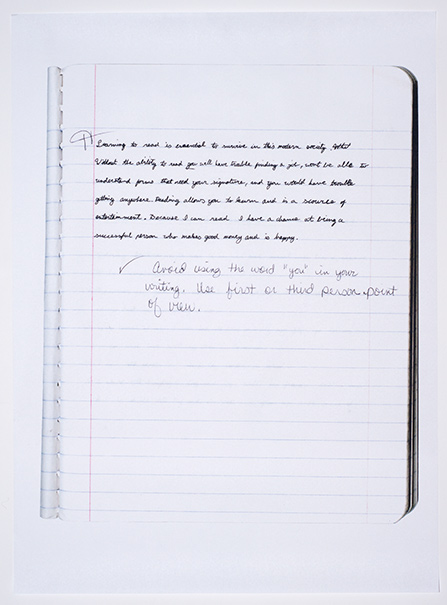 Learning to read is essential to survive in this modern society.
Without the ability to read you will have trouble finding a job, wont be able to
understand forms that need your signature, and you would have trouble
getting anywhere. Reading allows you to learn and is a source of
entertainment. Because I can read I have a chance at being a
successful person who makes good money and is happy.
✓ Avoid using the word "you" in your
writing. Use first or third person point
of view.